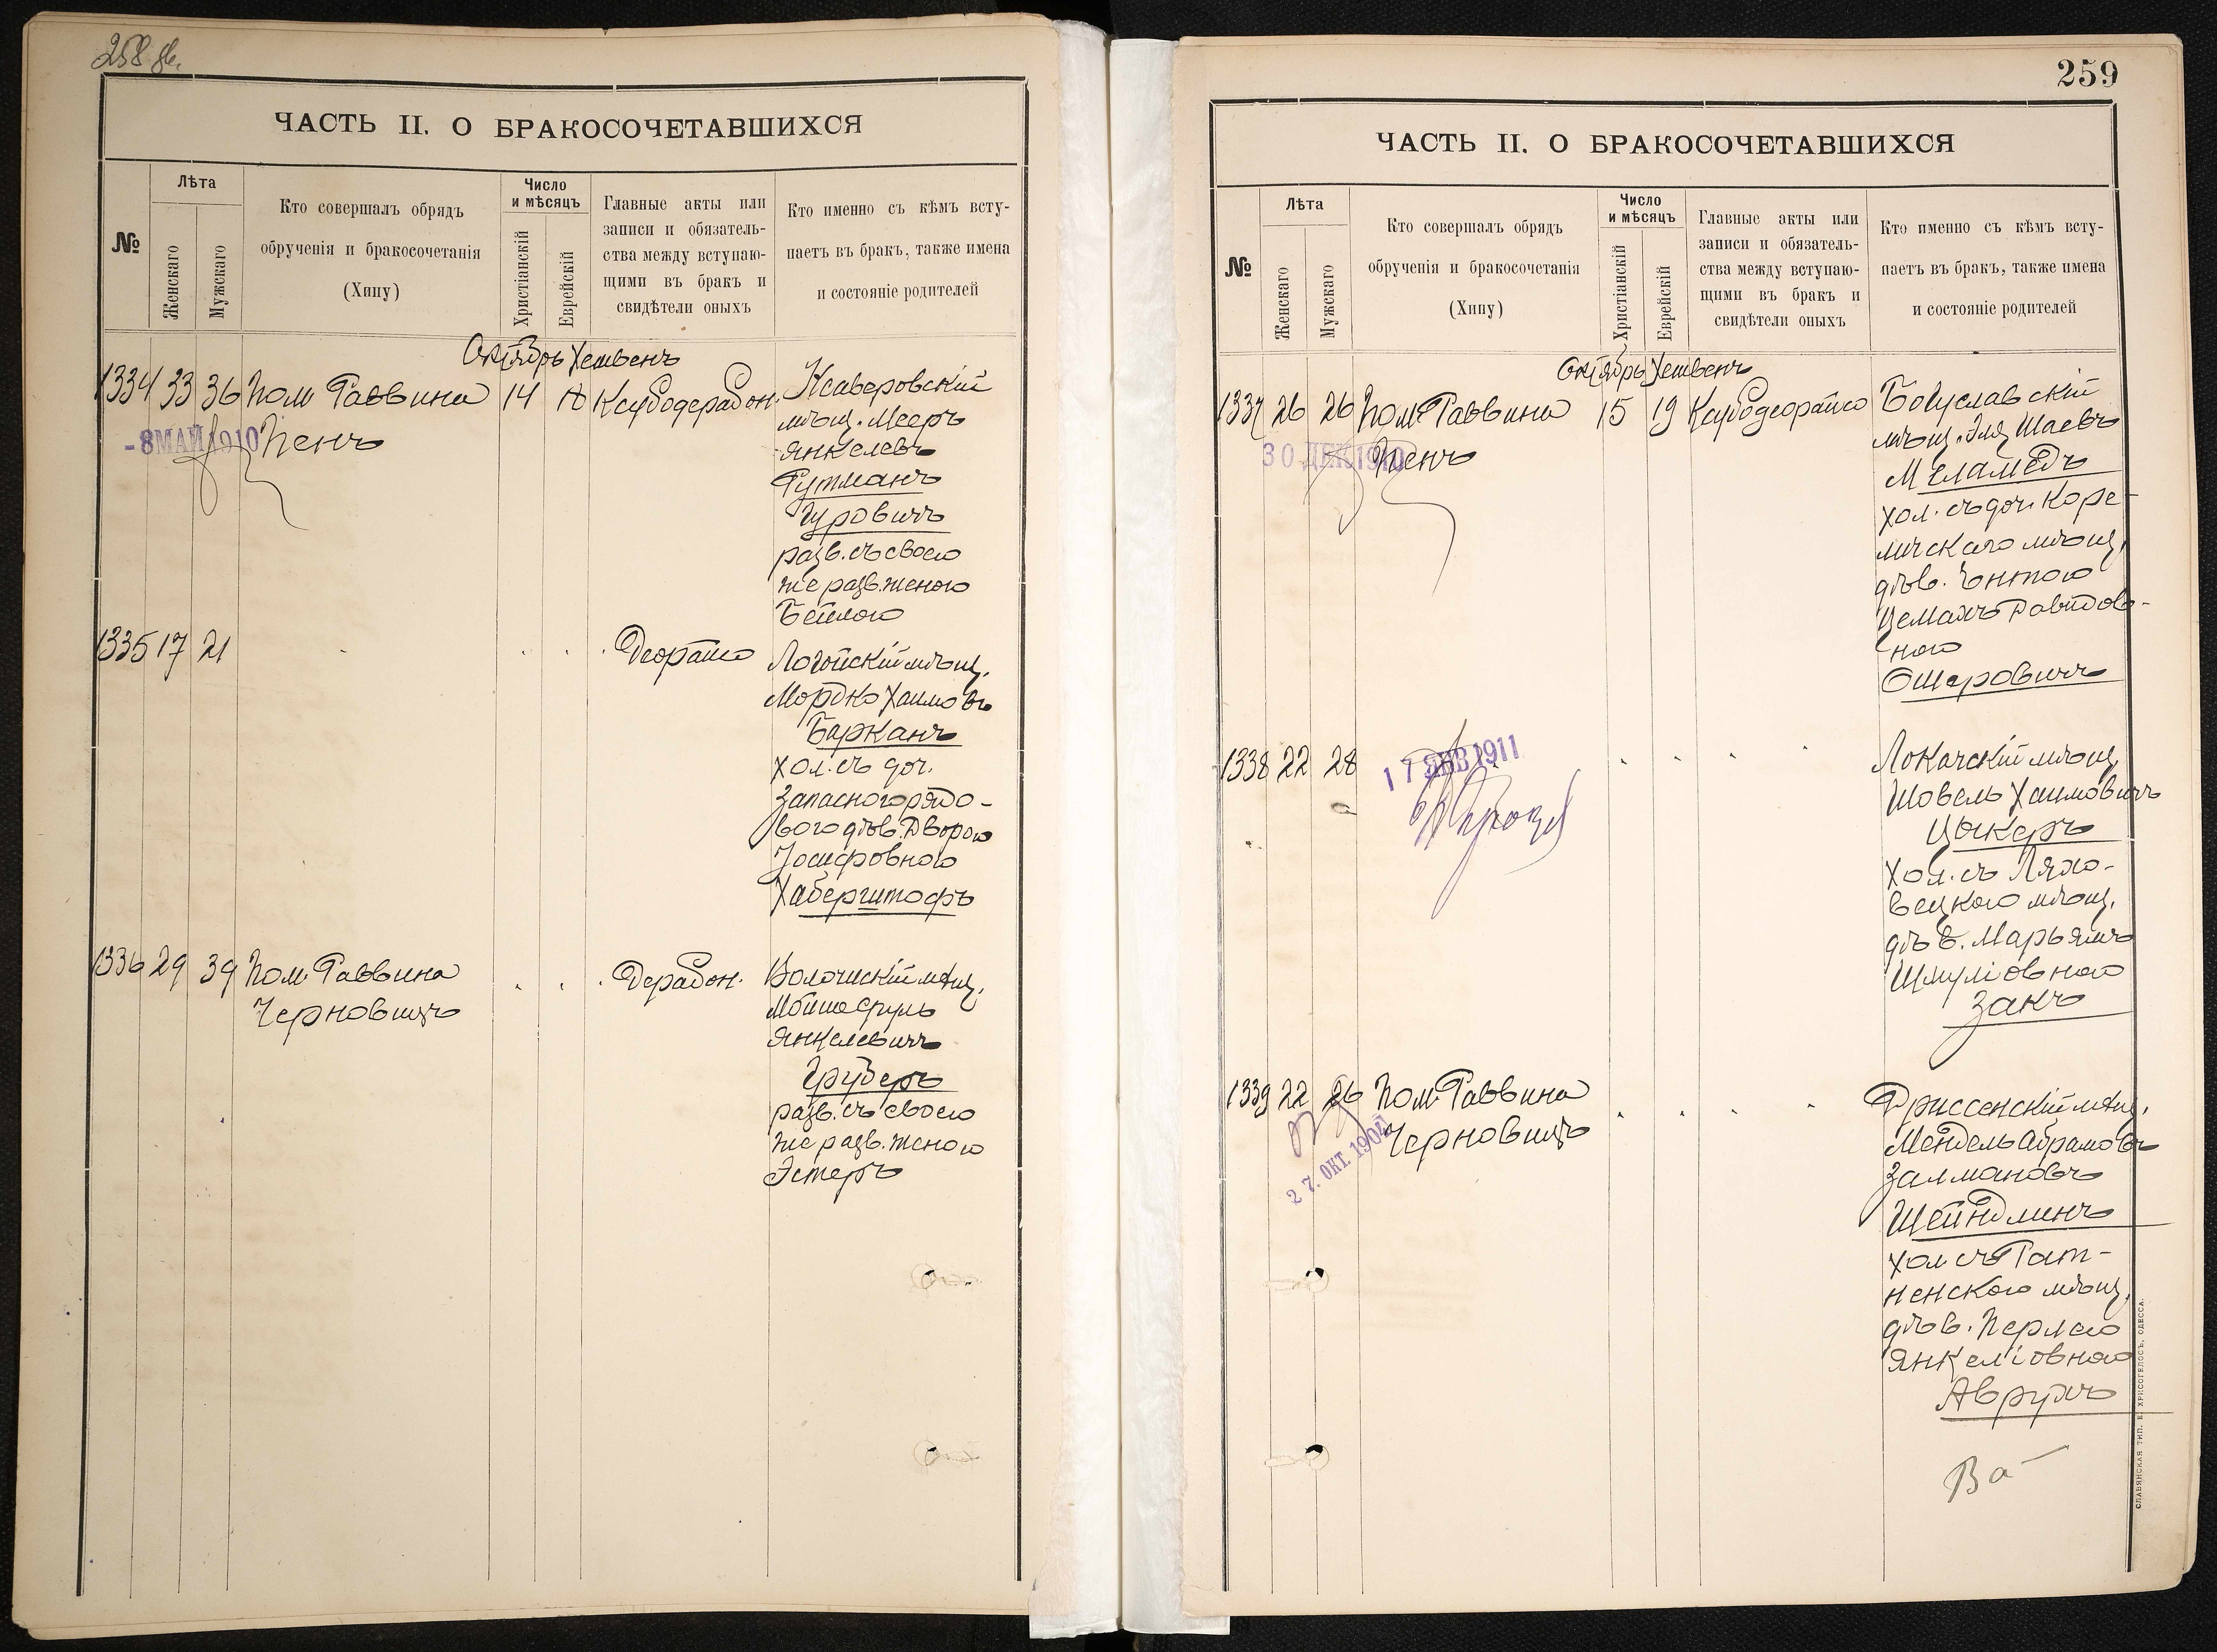 258 об.
ЧАСТЬ II. О БРАКОСОЧЕТАВШИХСЯ
№
Лѣта
Женскаго
Мужскаго
Кто совершалъ обрядъ
обрученія и бракосочетанія
(Хипу)
Число
и мѣсяцъ
Христіанскій
Еврейскій
Главные акты или
записи и обязатель-
ства между вступаю-
щими въ бракъ и
свидѣтели оныхъ
Кто именно съ кѣмъ всту-
паетъ въ бракъ, также имена
и состояніе родителей
Октябрь Хешвенъ
1334 33 36 Пом Раввина 14 18 Ксубодерабон. Ксаверовскій
-8 МАЙ 1910 Пенъ
мѣщ. Мееръ
Янкелевъ
Гутманъ
Гуровичъ
разв. съ своею
же разв. женою
Бейлою
1335 17 21 Деорайсо Логойскій мѣщ.
Мордко Хаимовъ
Барканъ
хол. съ доч.
запасного рядо-
вого дѣв. Дворою
Іосифовною
Хабергштофъ
1336 29 39 Пом. Раввина Дерабон. Волочискій мѣщ.
Черновицъ
Мойше Сруль
Янкелевичъ
Груберъ
разв. съ своею
же разв. женою
Эстеръ
259
ЧАСТЬ II. О БРАКОСОЧЕТАВШИХСЯ
№
Лѣта
Женскаго
Мужскаго
Кто совершалъ обрядъ
обрученія и бракосочетанія
(Хипу)
Число
и мѣсяцъ
Христіанскій
Еврейскій
Главные акты или
записи и обязатель-
ства между вступаю-
щими въ бракъ и
свидѣтели оныхъ
Кто именно съ кѣмъ всту-
паетъ въ бракъ, также имена
и состояніе родителей
Октябрь Хешвенъ
1337 26 26 Пом. Раввина 15 19 Ксубодеорайсо Богуславскій
30 ДЕК 1910 Пенъ
мѣщ. Эля Шаевъ
Меламедъ
хол. съ доч. Коре-
личскаго мѣщ.
дѣв.
Цемахъ Давидов-
ною
Ошеровичъ
1338 22 28 Локачскій мѣщ.
17 ЯНВ 1911
Шовель Хаимовичъ
Цукеръ
хол. съ Ляхо-
вецкого мѣщ.
дѣв. Марьямъ
Шмуліовною
Закъ
1339 22 26 Пом. Раввина Дриссенскій мѣщ.
Черновицъ
27. ОКТ. 1904
Мендель Абрамовъ
Залмановъ
Шейндлинъ
хол съ Рат-
ненского мѣщ.
дѣв. Перлею
Янкеліовною
Аврухъ
СЛАВЯНСКАЯ ТИП. Е. ХРИСОГЕЛОСЪ, ОДЕССА.